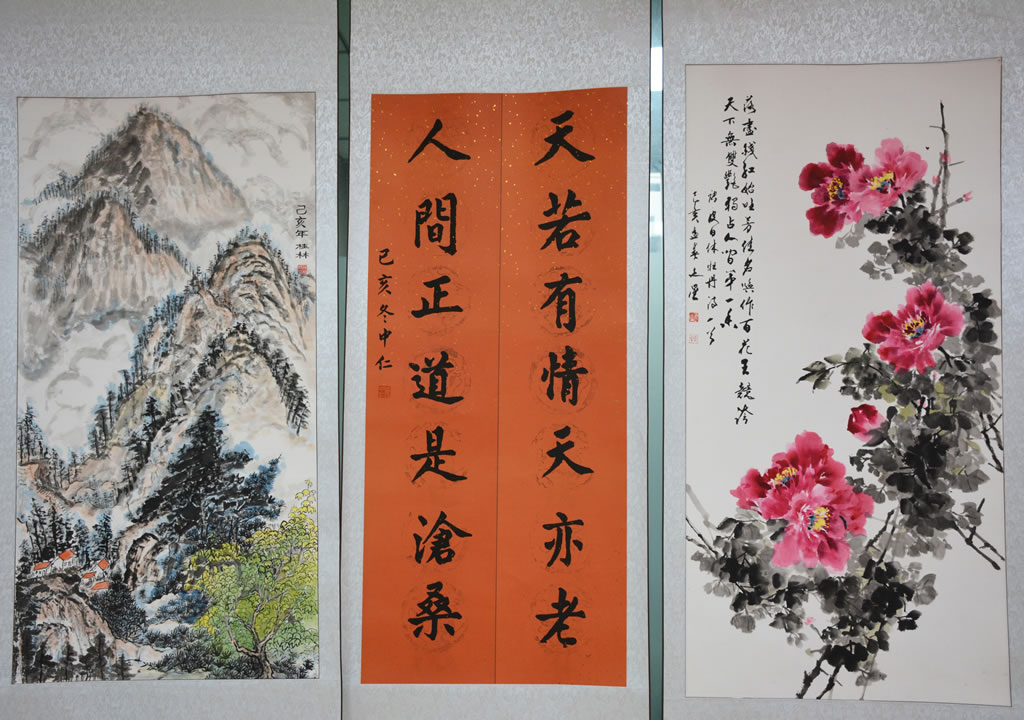 己亥年 桂林
天若有情天亦老
人間正道是滄桑
己亥冬中仁
落盡殘紅始吐芳佳名喚作百花王競誇
天下無雙艷獨占人間第一香
皮日休牡丹詩一首
己亥